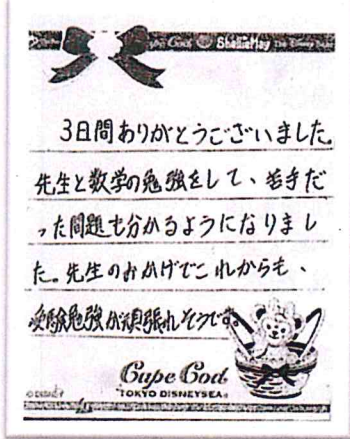 Cape Cod ShellieMay The Disney Bear
3日間ありがとうございました。
先生と数学の勉強をして、苦手だ
った問題も分かるようになりまし
た。先生のおかげでこれからも、
受験勉強が頑張れそうです。
Cape Cod
TOKYO DISNEYSEA®
©DISNEY